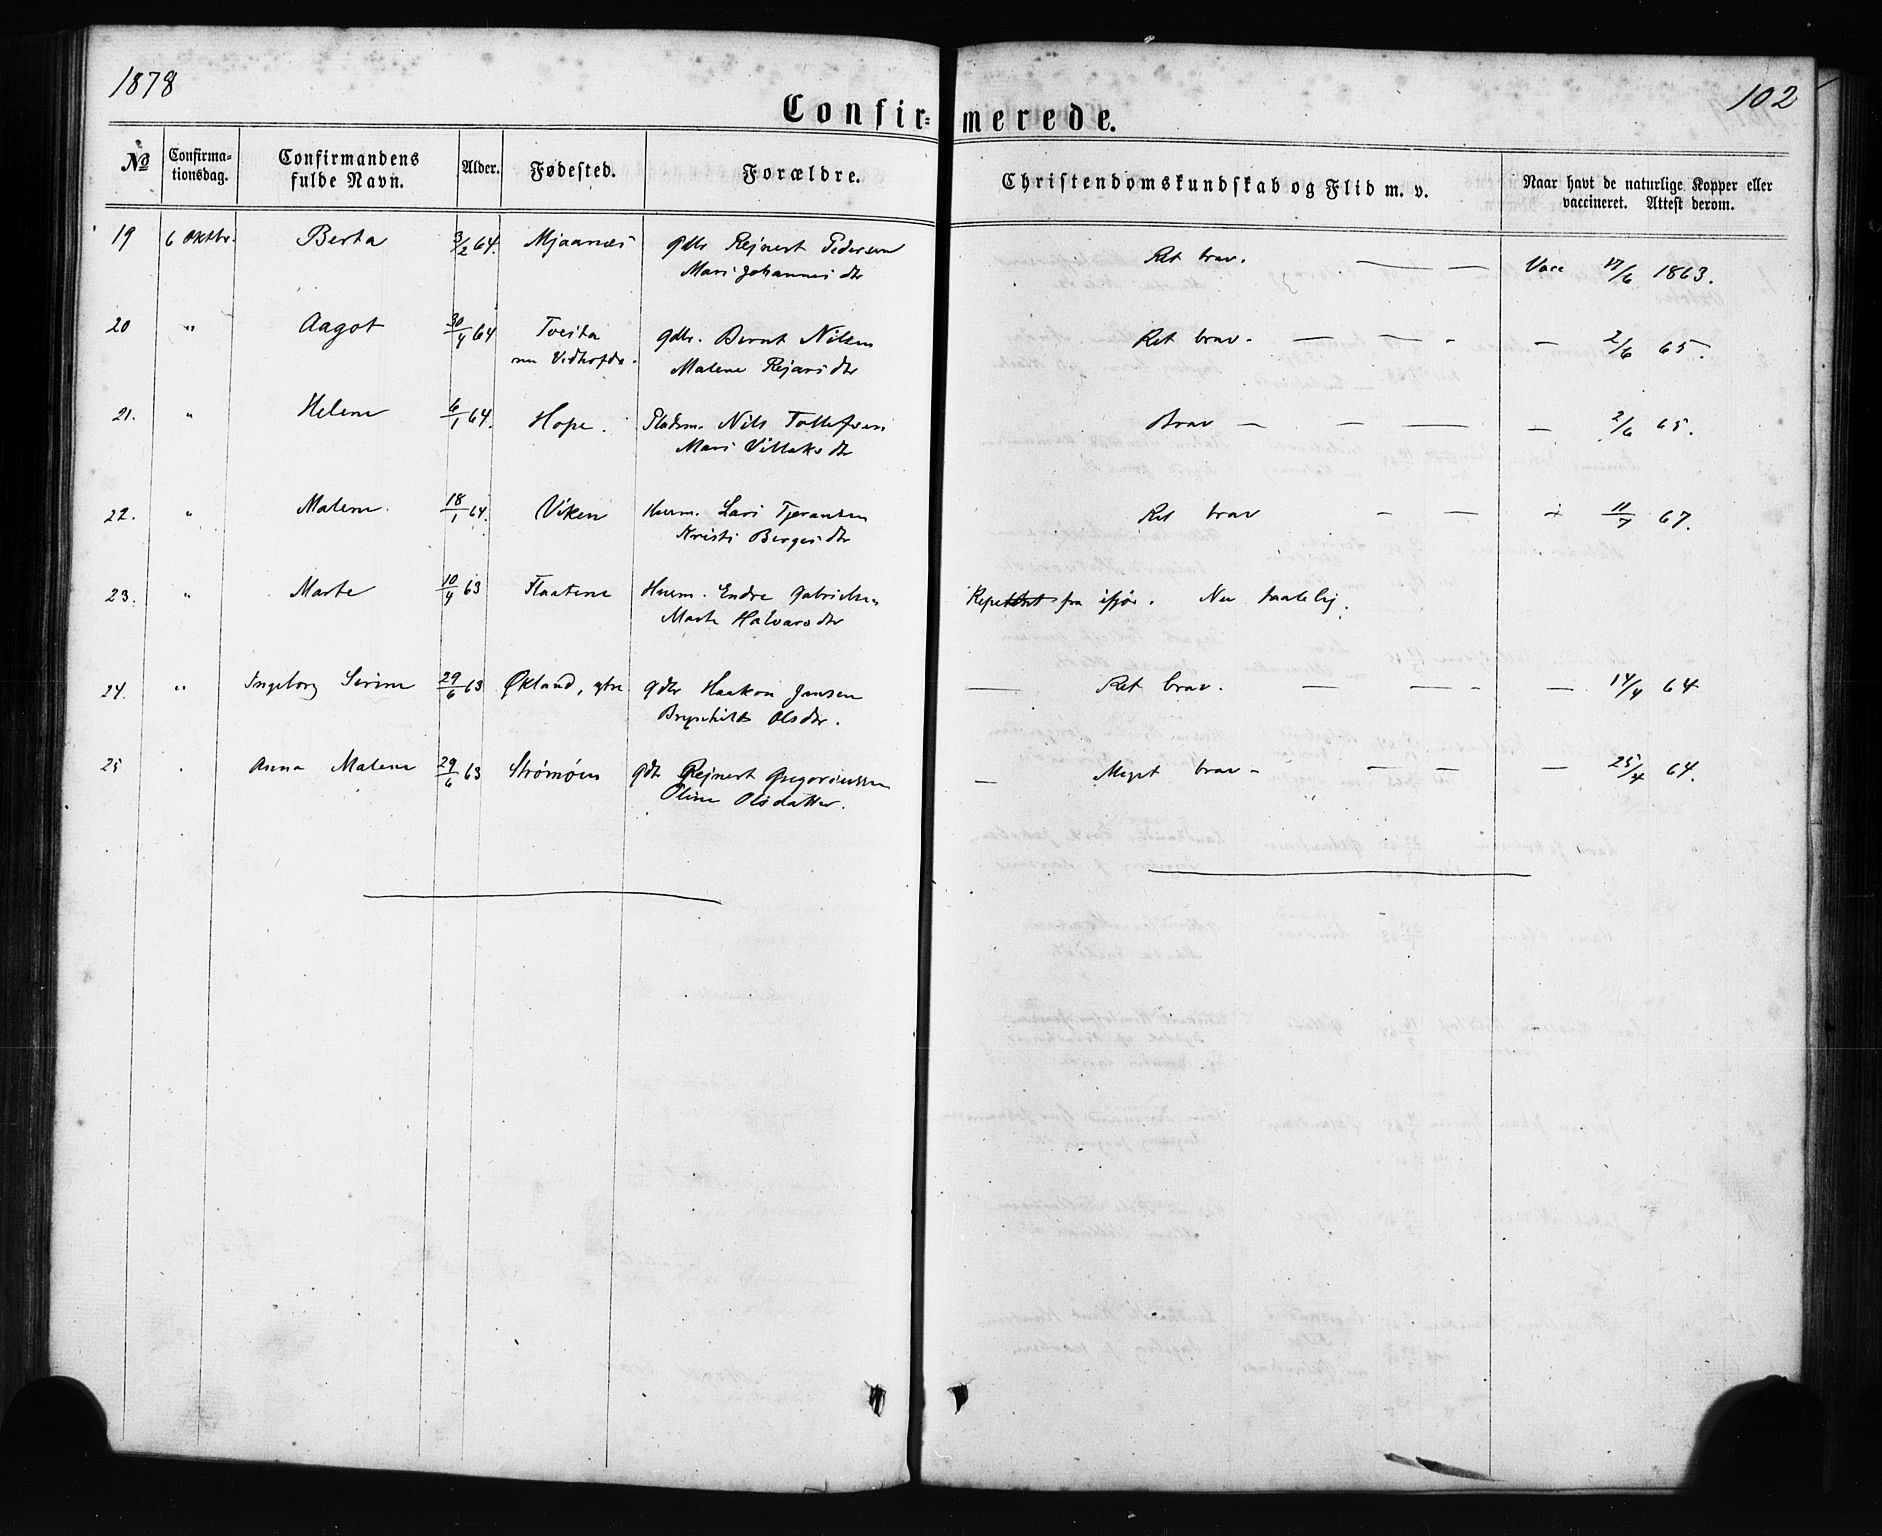 1878
102
Confir- merede.
№ Confirma-tionsdag. Confirmandens fulde Navn. Alder. Fødested. Forældre. Christendomskundskab og Flid m. v. Naar havt de naturlige Kopper eller vaccineret. Attest derom.
19 6 Oktbr. Berta 3/2 64. Mjaanæs Gdbr Rejnert Pedersen Ret brav. — — Vacc /6 1863.
Mari Johannesdtr
20 " Aagot 30/4 64 Tveita Gdbr. Bernt Nilsen Ret brav. — — - — 2/6 65.
Malene Rejarsdtr
21. " Helene 6/1 64. Hope. Pladsm. Nils Tollefsen Brav — — — — 2/6 65.
Mari Villaksdtr
22. " Malene. 18/1 64. Viken Huusm. Lars Tjeransen Ret brav — — 11/7 67.
Kristi Bergesdtr
23. " Marte 10/4 63 Flaatene Huusm. Endre Gabrielsen fra ifjor. Nu taalelig.
Marte Halvarsdtr
24. " Ingeborg Serine 29/6 63 Økland, ytre Gdbr Haakon Jansen — Ret brav. — — - — 14/4 64
Brynhild Olsdtr.
25 . Anna Malene 29/6 63 Strømøen Gdbr Rejnert Gregoriussen — Meget brav — — — — 25/4 64.
Oline Olsdatter.